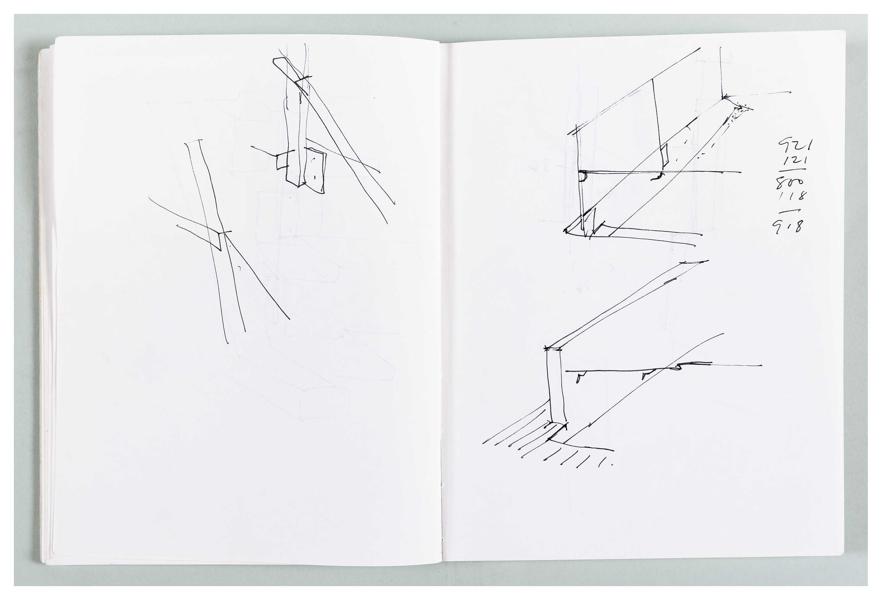 921
121
800
118
918